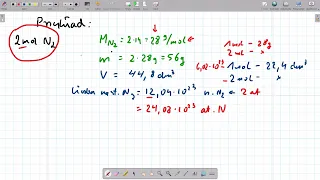 Przykład:
2 mol N₂
M_N₂ = 2·14 = 28 g/mol
m = 2·28g = 56g
V = 44,8 dm³
1 mol - 28g
2 mol - x
6,02·10²³ - 1 mol - 22,4 dm³
2 mol - x
N₂ = 12,04·10²³ 2 at
= 24,08·10²³ at. N